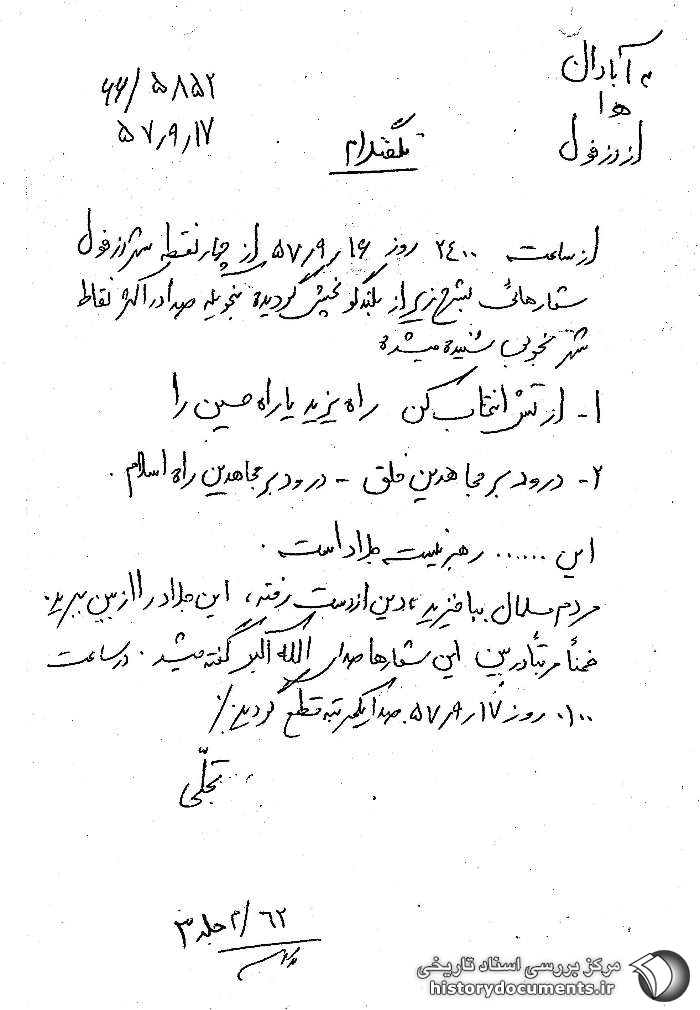 به آبادان
۵۸۵۲/۶۶
ﻫ ۱
۵۷٫۹٫۱۷
از دزفول
تلفنگرام
از ساعت ۲۴۰۰ روز ۵۷٫۹٫۱۶ از چهار نقطه شهر دزفول
شعارهائی بشرح زیر از بلندگو پخش گردیده بنحویکه صدا در اکثر نقاط
شهر بخوبی شنیده میشده
۱- ارتش انتخاب کن راه یزید یا راه حسین را
۲- درود بر مجاهدین خلق - درود بر مجاهدین راه اسلام.
این ...... رهبر نیست جلاد است.
مردم مسلمان بپاخیزید، دین از دست رفته، این جلاد را از بین ببرید.
ضمناً مرتباً در بین این شعارها صدای الله اکبر گفته میشد. در ساعت
۰۱۰۰ روز ۵۷٫۹٫۱۷ صدا یکمرتبه قطع گردید/
تجلّی
۶۲/م جلد ۳
مرکز بررسی اسناد تاریخی
historydocuments.ir